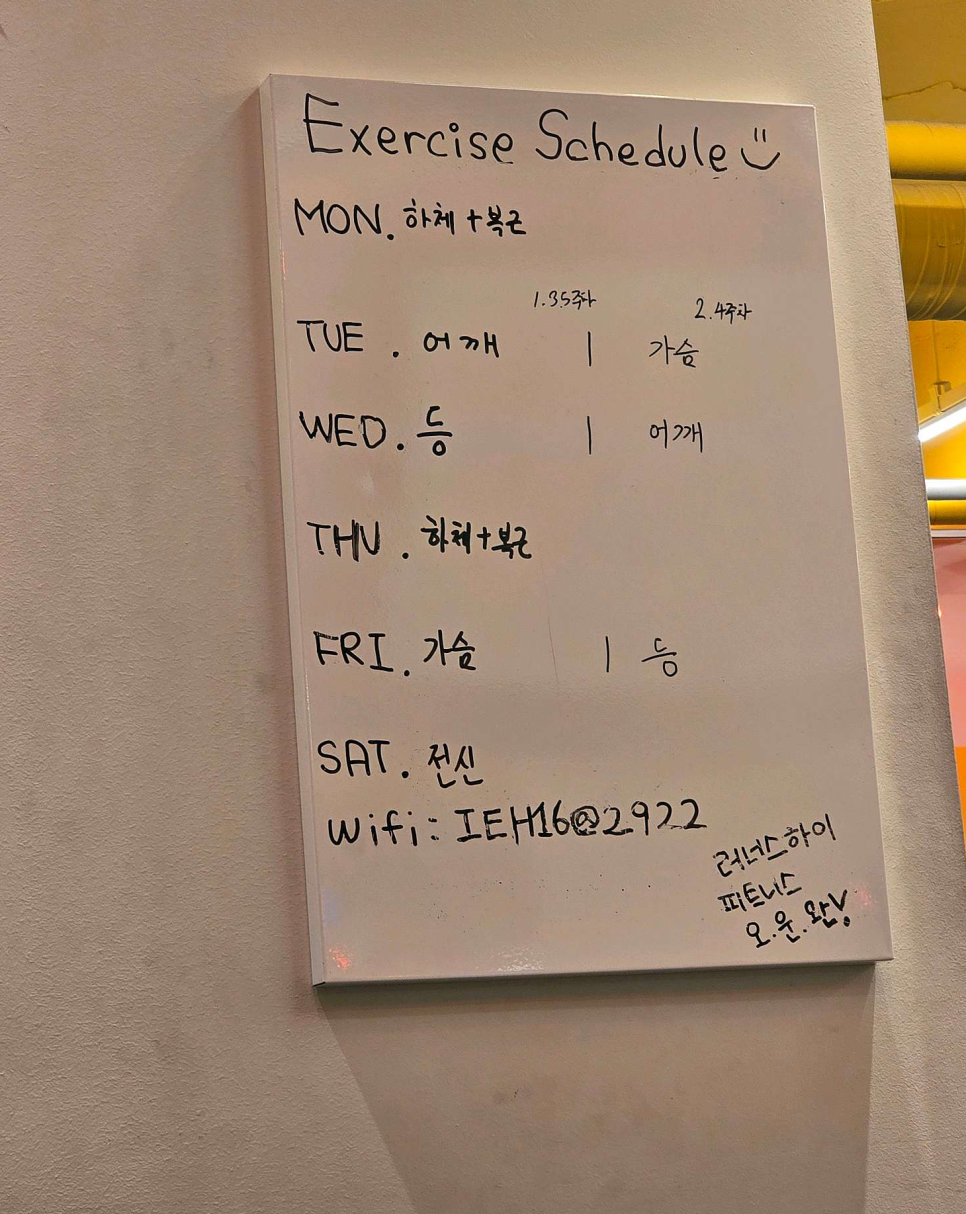 Exercise Schedule
MON. 하체 + 복근
1.3.5주차 2.4주차
TUE . 어깨 | 가슴
WED. 등 | 어깨
THU . 하체+복근
FRI. 가슴 | 등
SAT. 전신
Wifi: IEH16@2922
러너스하이
피트니스
오.운.완